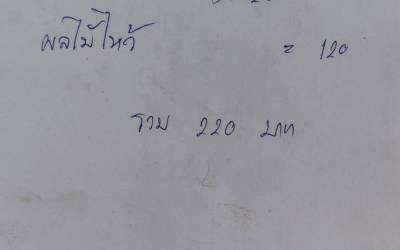 ผลไม้ไหว้ = 120
รวม 220 บาท